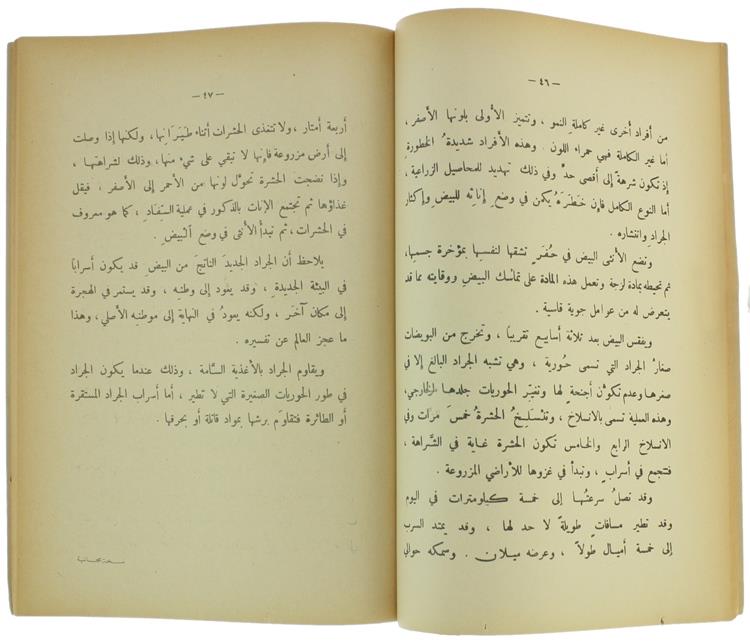 — ٤٦ —
من أفراد أخرى غير كاملةِ النمو . وتتميز الأولى بلونها الأصفر،
أما غير الكاملة فهي حمراء اللون . وهذه الأفراد شديدةُ الخطورةِ
إذ تكون شرهةً إلى أقصى حدٍّ وفي ذلك تهديد للمحاصيل الزراعية ،
أما النوع الكامل فإن خَطَرَهُ يكمن في وضعِ إناثِه للبيض وإكثار
الجرادِ وانتشاره .
وتضع الأنثى البيض في حُفَرٍ تشقها لنفسها بمؤخرة جسمها،
ثم تحيطه بمادة لزجة وتعمل هذه المادة على تماسُك البيض ووقايته مما قد
يتعرض له من عوامل جوية قاسية .
ويفقس البيض بعد ثلاثة أسابيع تقريبًا ، وتخرج من البويضات
صغارُ الجراد التي تسمى حُورية ، وهي تشبه الجراد البالغ إلا في
صغرها وعدم تكوُّن أجنحةٍ لها وتغيّر الحوريات جلدها الخارجي،
وهذه العملية تسمى بالانسلاخ ، وتنْسَلِخُ الحشرةُ خمسَ مرات وفي
الانسلاخ الرابع والخامس تكون الحشرة غاية في الشَّراهة ،
فتتجمع في أسرابٍ ، وتبدأ في غزوها للأراضي المزروعة .
وقد تصلُ سرعتُها إلى خمسة كيلومترات في اليوم
وقد تطير مسافاتٍ طويلةً لا حد لها ، وقد يمتد السرب
إلى خمسة أميال طولاً ، وعرضه ميلان . وسمكه حوالي
— ٤٧ —
أربعة أمتار ، ولا تتغذى الحشرات أثناء طَيَرَانِها، ولكنها إذا وصلت
إلى أرض مزروعة فإنها لا تبقي على شيءٍ منها، وذلك لشراهتها .
وإذا نضجت الحشرة تحوّل لونها من الأحمر إلى الأصفر ، فيقل
غذاؤها ثم تجتمع الإناث بالذكور في عملية السِّفَادِ ، كما هو معروف
في الحشرات ، ثم تبدأ الأنثى في وضع البيضِ .
يلاحظ أن الجراد الجديدَ الناتجَ من البيض قد يكون أسرابًا
في البيئة الجديدةِ ، وقد يعود إلى وطنِه ، وقد يستمر في الهجرة
إلى مكان آخَرَ ، ولكنه يعودُ في النهاية إلى موطنِه الأصلي، وهذا
ما عجز العالم عن تفسيره .
ويقاوم الجراد بالأغذية السَّامة ، وذلك عندما يكون الجراد
في طور الحوريات الصغيرة التي لا تطير ، أما أسراب الجراد المستقرة
أو الطائرة فتقاوَم برشها بمواد قاتلة أو بحرقها .